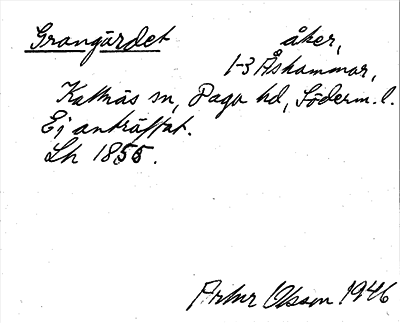 Grangärdet åker,
1-3 Åshammar,
Kattnäs sn, Daga hd, Söderm. l.
Ej anträffat.
Lh 1855.
Artur Olsson 1946